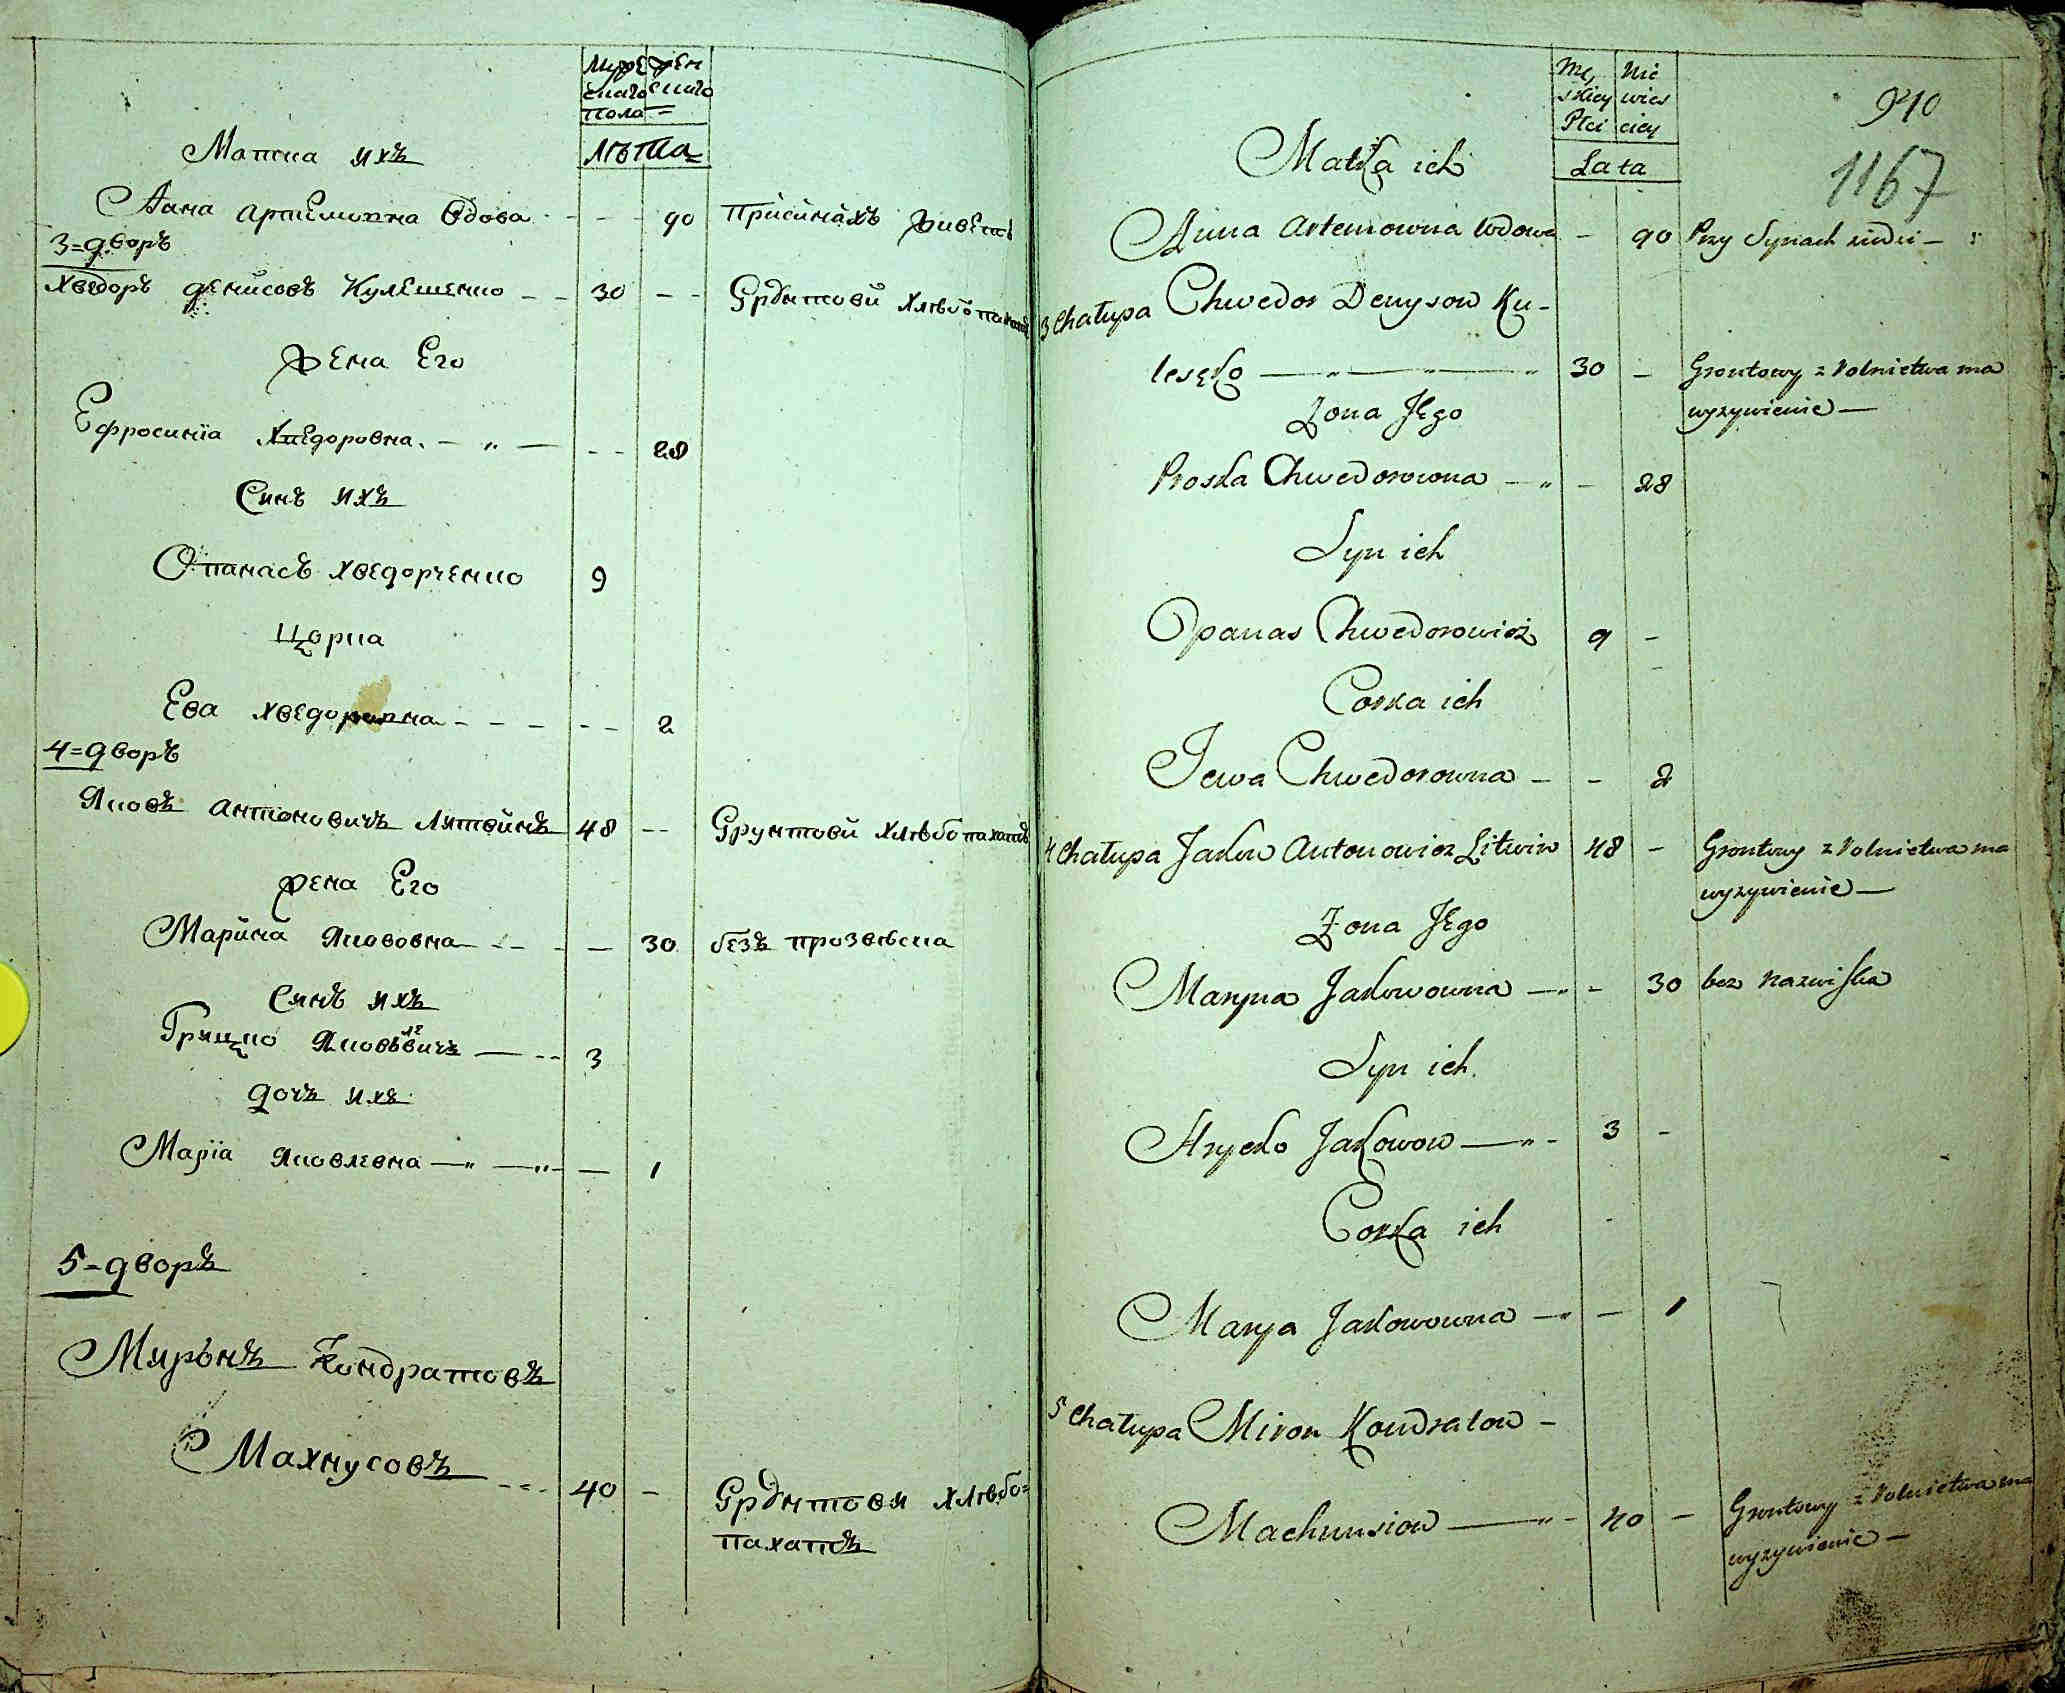 Муже жен
скаго скаго
пола
Лѣта
Матка ихъ
Анна Артемовна Вдова - - - 90 Присинахъ живетъ
3=дворъ
Хведоръ Денисовъ Кулешенко - - 30 - - Ґрунтовй хлѣбопахатъ
Жена Его
Ефросинїа Хведоровна. - „ - - - 28
Синъ ихъ
Опанасъ Хведорченко 9
Цорка
Ева Хведоровна - - - - - 2
4=дворъ
Яковъ Антоновичъ Литвинъ 48 - - Ґрунтовй хлѣбопахатъ
Жена Его
Марина Якововна - - - - 30 безъ прозвѣска
Синъ ихъ
Грицко Яковлевичъ - - - 3
Дочъ ихъ
Марїа Яковлевна - „ - „ - - 1
5=дворъ
Миронъ Кондратовъ
Махнусовъ - - - 40 - Ґрунтови хлѣбо=
пахатъ
Mę Nie
skiey wies
Płci ciey
Lata
940
1167
Matka ich
Anna Artemowna Wdowa - 90 Przy Synach siedzi -
3 Chałupa Chwedor Denysow Ku-
leszko - „ - „ - „ 30 - Grontowy z Rolnictwa ma
wyzywienie -
Zona Jego
Proska Chwedorowna - „ - 28
Syn ich
Opanas Chwedorowicz 9 -
Corka ich
Jewa Chwedorowna - - 2
4 Chałupa Jakow Antonowicz Litwin 48 - Grontowy z Rolnictwa ma
wyzywienie -
Zona Jego
Maryna Jakowowna - „ - 30 bez Nazwiska
Syn ich.
Hrycko Jakowow - „ - 3 -
Corka ich
Marya Jakowowna - „ - 1
5 Chałupa Miron Kondratow -
Machnusiow - „ - 40 - Grontowy z Rolnictwa ma
wyzywienie -